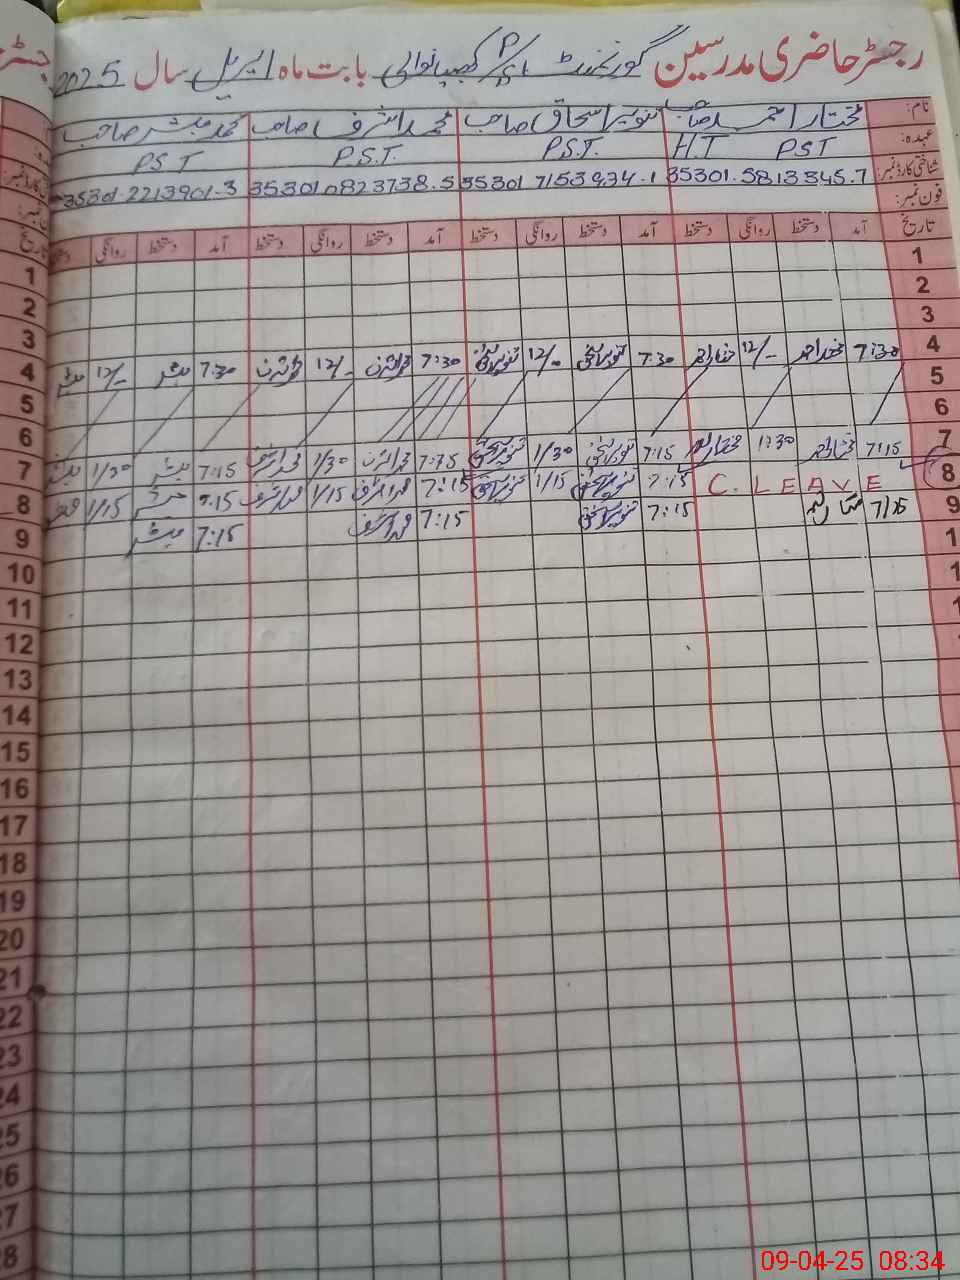 رجسٹر حاضری مدرسین گورنمنٹ P/S بابت ماہ اپریل سال 2025
نام: مختار احمد صاحب تنویر اسحاق صاحب محمد اشرف صاحب محمد مبشر صاحب
عہدہ: PST H.T P.S.T. P.S.T. P.S.T
شناختی کارڈ نمبر: 35301.5813345.7 35301 7153934.1 35301 0823738.5 35301.2213901.3
فون نمبر:
تاریخ آمد دستخط روانگی دستخط آمد دستخط روانگی دستخط آمد دستخط روانگی دستخط آمد دستخط روانگی دستخط
1
2
3
4 7:30 مختار احمد 12/- مختار احمد 7:30 تنویر اسحاق 12/- تنویر اسحاق 7:30 محمد اشرف 12/- محمد اشرف 7:30 مبشر 12/- مبشر
5
6
7 7:15 مختار احمد 1:30 مختار احمد 7:15 تنویر اسحاق 1/30 تنویر اسحاق 7:15 محمد اشرف 1/30 محمد اشرف 7:15 مبشر 1/30 مبشر
8 C. LEAVE 7:15 تنویر اسحاق 1/15 تنویر اسحاق 7:15 محمد اشرف 1/15 محمد اشرف 7:15 مبشر 1/15
9 7/15 7:15 تنویر اسحاق 7:15 محمد اشرف 7:15 مبشر
10
11
12
13
14
15
16
17
18
19
20
21
22
23
24
25
26
27
28
09-04-25 08:34